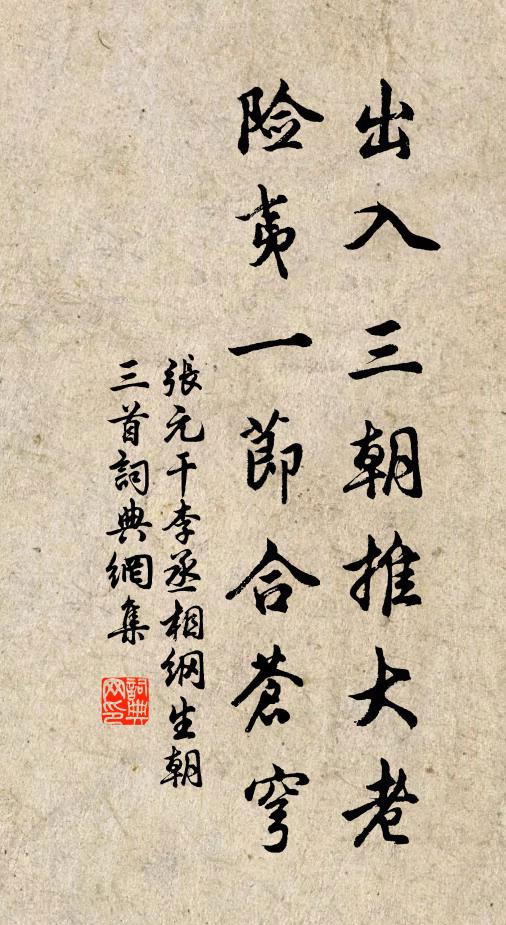 出入三朝推大老
险夷一節合蒼穹
張元干李丞相綱生朝
三首詞典網集
詞典网印